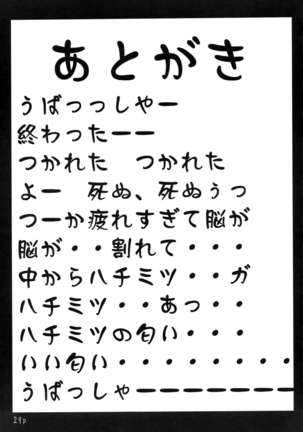 あとがき
うばっっしゃー
終わったーー
つかれた　つかれた
よー　死ぬ、死ぬぅっ
つーか疲れすぎて脳が
脳が・・割れて・・・
中からハチミツ・・ガ
ハチミツ・・あっ・・
ハチミツの匂い・・・
いい匂い・・・・・・・・・
うばっしゃーーーーーーー
29p